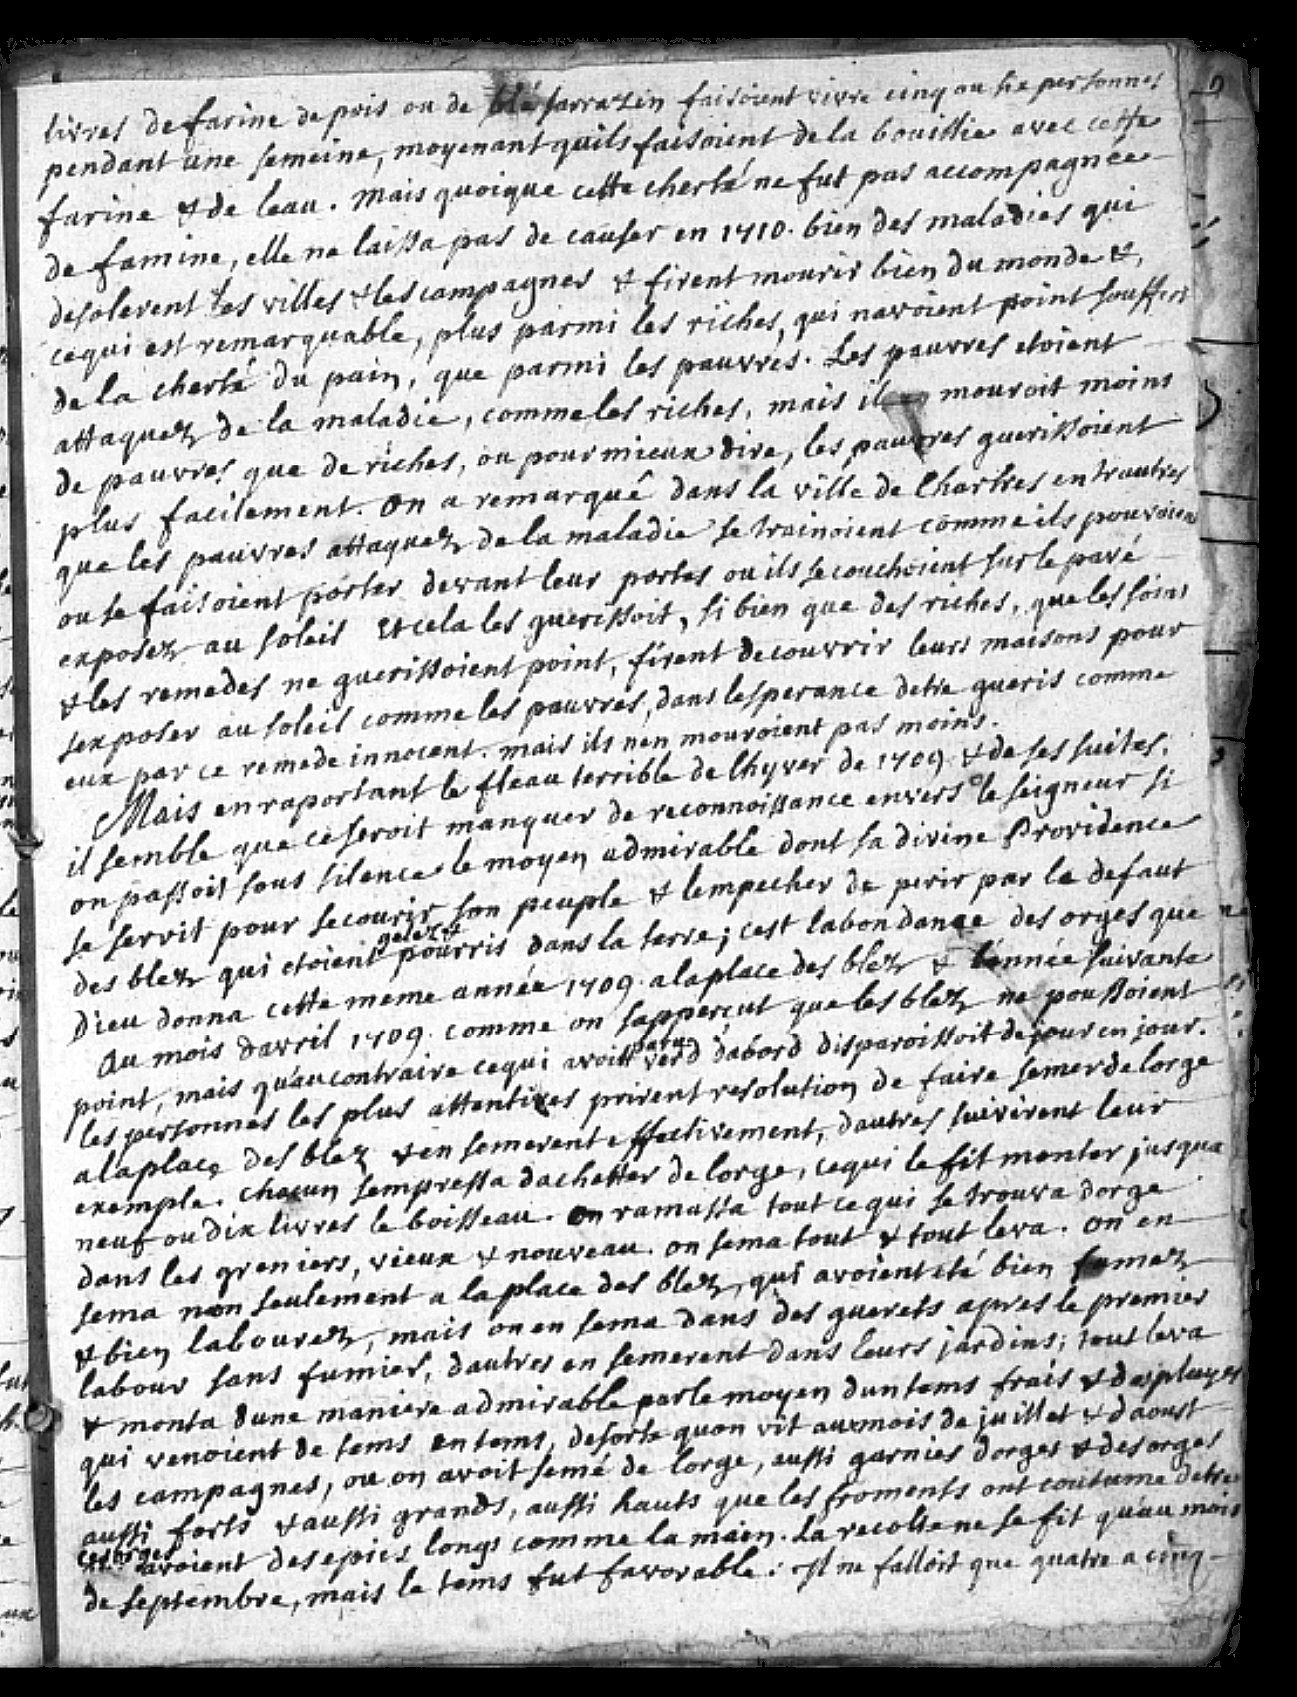 livres de farine de pois ou de blé sarrazin faisoient vivre cinq ou sie personnes
pendant une semeine, moyenant quils faisoient de la bouillie avec cette
farine & de leau. mais quoique cette cherté ne fut pas accompagnée
de famine, elle ne laissa pas de causer en 1710. bien des maladies qui
desolerent les villes & les campagnes & firent mourir bien du monde &,
cequi est remarquable, plus parmi les riches, qui navoient point souffert
de la cherté du pain, que parmi les pauvres. Les pauvres etoient
attaquez de la maladie, comme les riches, mais il en mouroit moins
de pauvres que de riches, ou pour mieux dire, les pauvres guerissoient
plus facilement. On a remarqué dans la ville de Chartres entrautres
que les pauvres attaquez de la maladie se trainoient comme ils pouvoient
ou se faisoient porter devant leur portes ou ils se couchoient sur le pavé
exposez au soleil Et cela les guerissoit, si bien que des riches, que les soins
& les remedes ne guerissoient point, firent decouvrir leurs maisons pour
sexposer au soleil comme les pauvres, dans lesperance detre gueris comme
eux par ce remede innocent. mais ils nen mouroient pas moins.
Mais en raportant le fleau terrible de lhyver de 1709. & de ses suites,
il semble que ce seroit manquer de reconnoissance envers le seigneur si
on passoit sous silence le moyen admirable dont sa divine Providence
se servit pour secourir son peuple & lempecher de perir par le defaut
des blez qui etoient gelez & pourris dans la terre; cest labondance des orges que
Dieu donna cette meme année 1709. a la place des blez & lannée suivante
Au mois davril 1709. comme on sapperçut que les blez ne poussoient
point, mais quau contraire cequi avoit paru verd dabord disparoissoit de jour en jour.
les personnes les plus attentives prirent resolution de faire semer de lorge
a la place des blez & en semerent effectivement, dautres suivirent leur
exemple. chacun sempressa dachetter de lorge, cequi le fit monter jusqua
neuf ou dix livres le boisseau. On ramassa tout ce qui se trouva dorge
dans les greniers, vieux & nouveau. on sema tout & tout leva. on en
sema non seulement a la place des blez, qui avoient eté bien fumez
& bien labourez, mais on en sema dans des guerets apres le premier
labour sans fumier, dautres en semerent dans leurs jardins; tout leva
& monta dune maniere admirable par le moyen dun tems frais & des pluyes
qui venoient de tems en tems, desorte quon vit aux mois de juillet & daoust
les campagnes, ou on avoit semé de lorge, aussi garnies dorges & des orges
aussi forts & aussi grands, aussi hauts que les froments ont coutume detre
ces orges avoient des epics longs comme la main. La recolte ne se fit quau mois
de septembre, mais le tems fut favorable: Il ne falloit que quatre a cinq